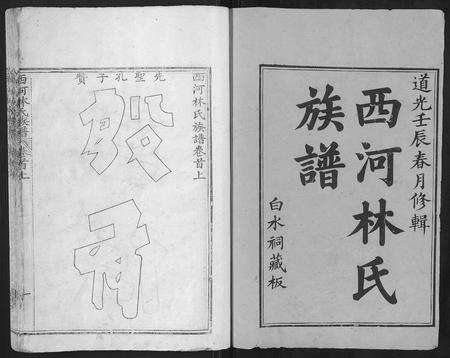 道光壬辰春月修輯
西河林氏
族譜
白水祠藏板
西河林氏族譜卷首上
先聖孔子贊
殷有
西河林氏族譜 卷首上 一